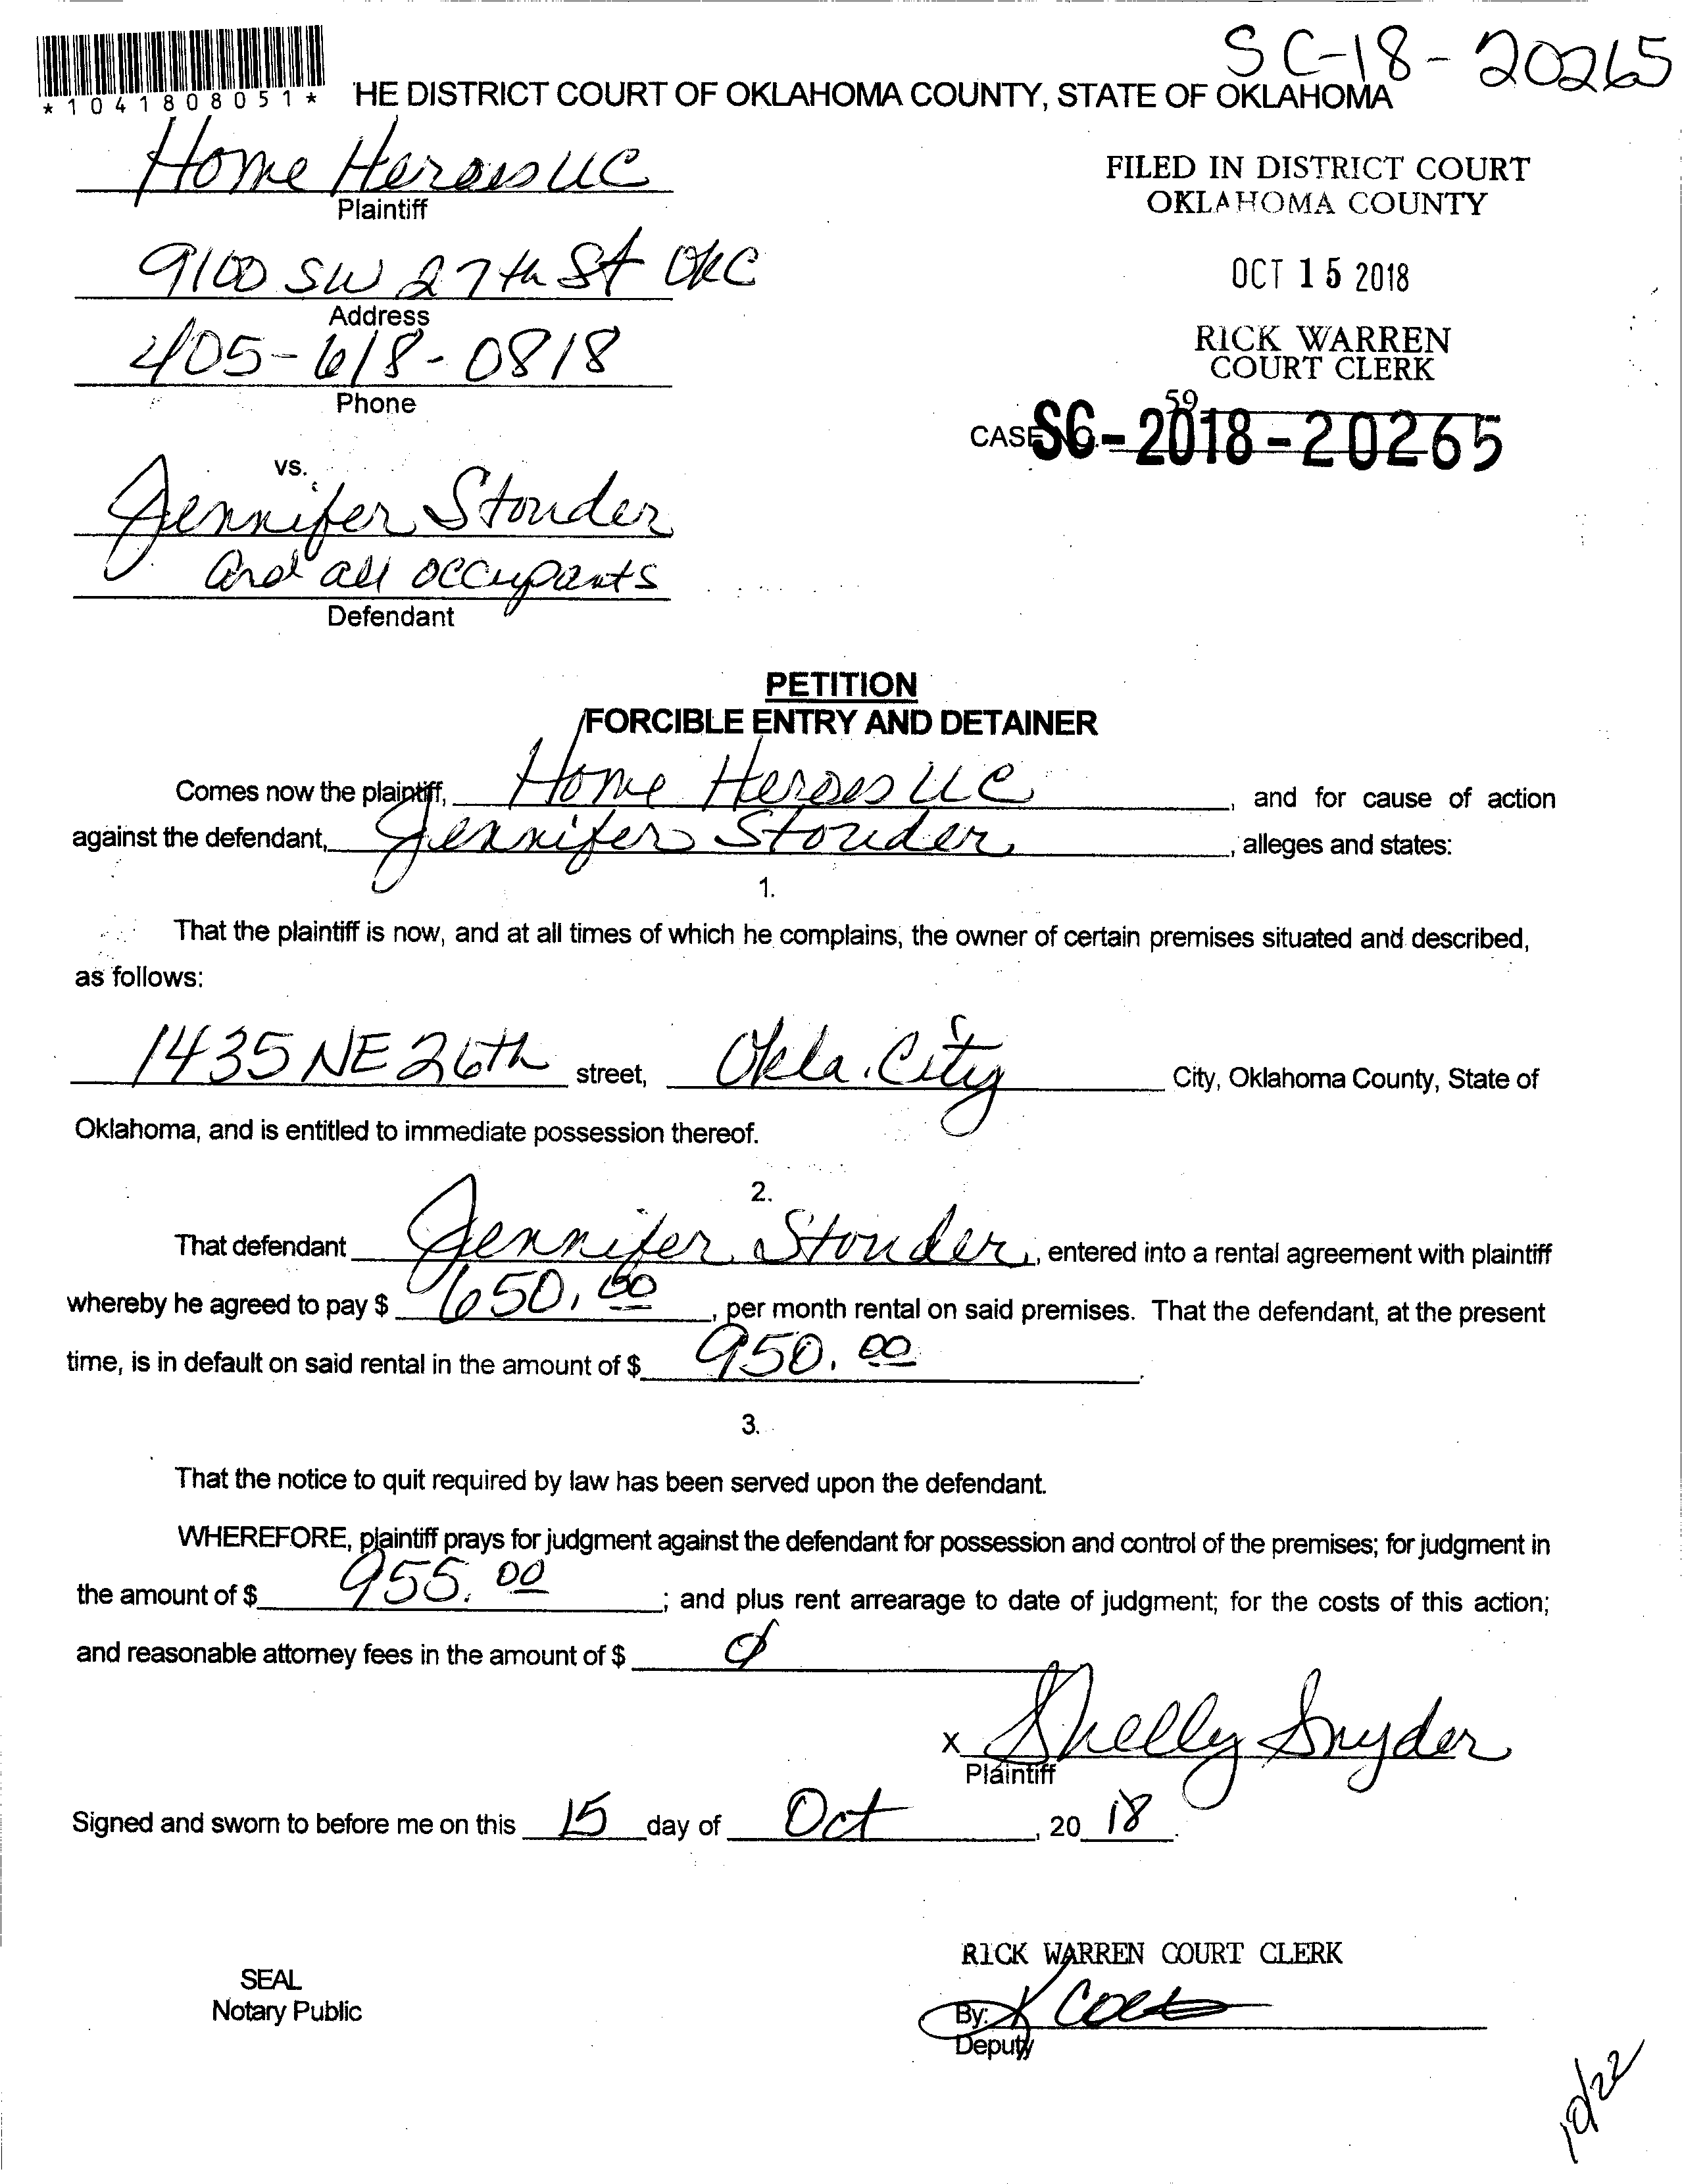 SC-18-20265
*1041808051*
HE DISTRICT COURT OF OKLAHOMA COUNTY, STATE OF OKLAHOMA
Home Heroes LLC
Plaintiff
9100 SW 27th St OKC
Address
405-618-0818
Phone
FILED IN DISTRICT COURT
OKLAHOMA COUNTY
OCT 15 2018
RICK WARREN
COURT CLERK
59
CASE NO. SC-2018-20265
vs.
Jennifer Stouder
and all occupants
Defendant
PETITION
FORCIBLE ENTRY AND DETAINER
Comes now the plaintiff, Home Heroes LLC, and for cause of action
against the defendant, Jennifer Stouder, alleges and states:
1.
That the plaintiff is now, and at all times of which he complains, the owner of certain premises situated and described,
as follows:
1435 NE 26th street, Okla. City City, Oklahoma County, State of
Oklahoma, and is entitled to immediate possession thereof.
2.
That defendant Jennifer Stouder, entered into a rental agreement with plaintiff
whereby he agreed to pay $ 650.00, per month rental on said premises. That the defendant, at the present
time, is in default on said rental in the amount of $ 950.00.
3.
That the notice to quit required by law has been served upon the defendant.
WHEREFORE, plaintiff prays for judgment against the defendant for possession and control of the premises; for judgment in
the amount of $ 955.00; and plus rent arrearage to date of judgment; for the costs of this action;
and reasonable attorney fees in the amount of $ 0
X Shelly Snyder
Plaintiff
Signed and sworn to before me on this 15 day of Oct, 2018.
RICK WARREN COURT CLERK
SEAL
Notary Public
By: K
Deputy
10/22